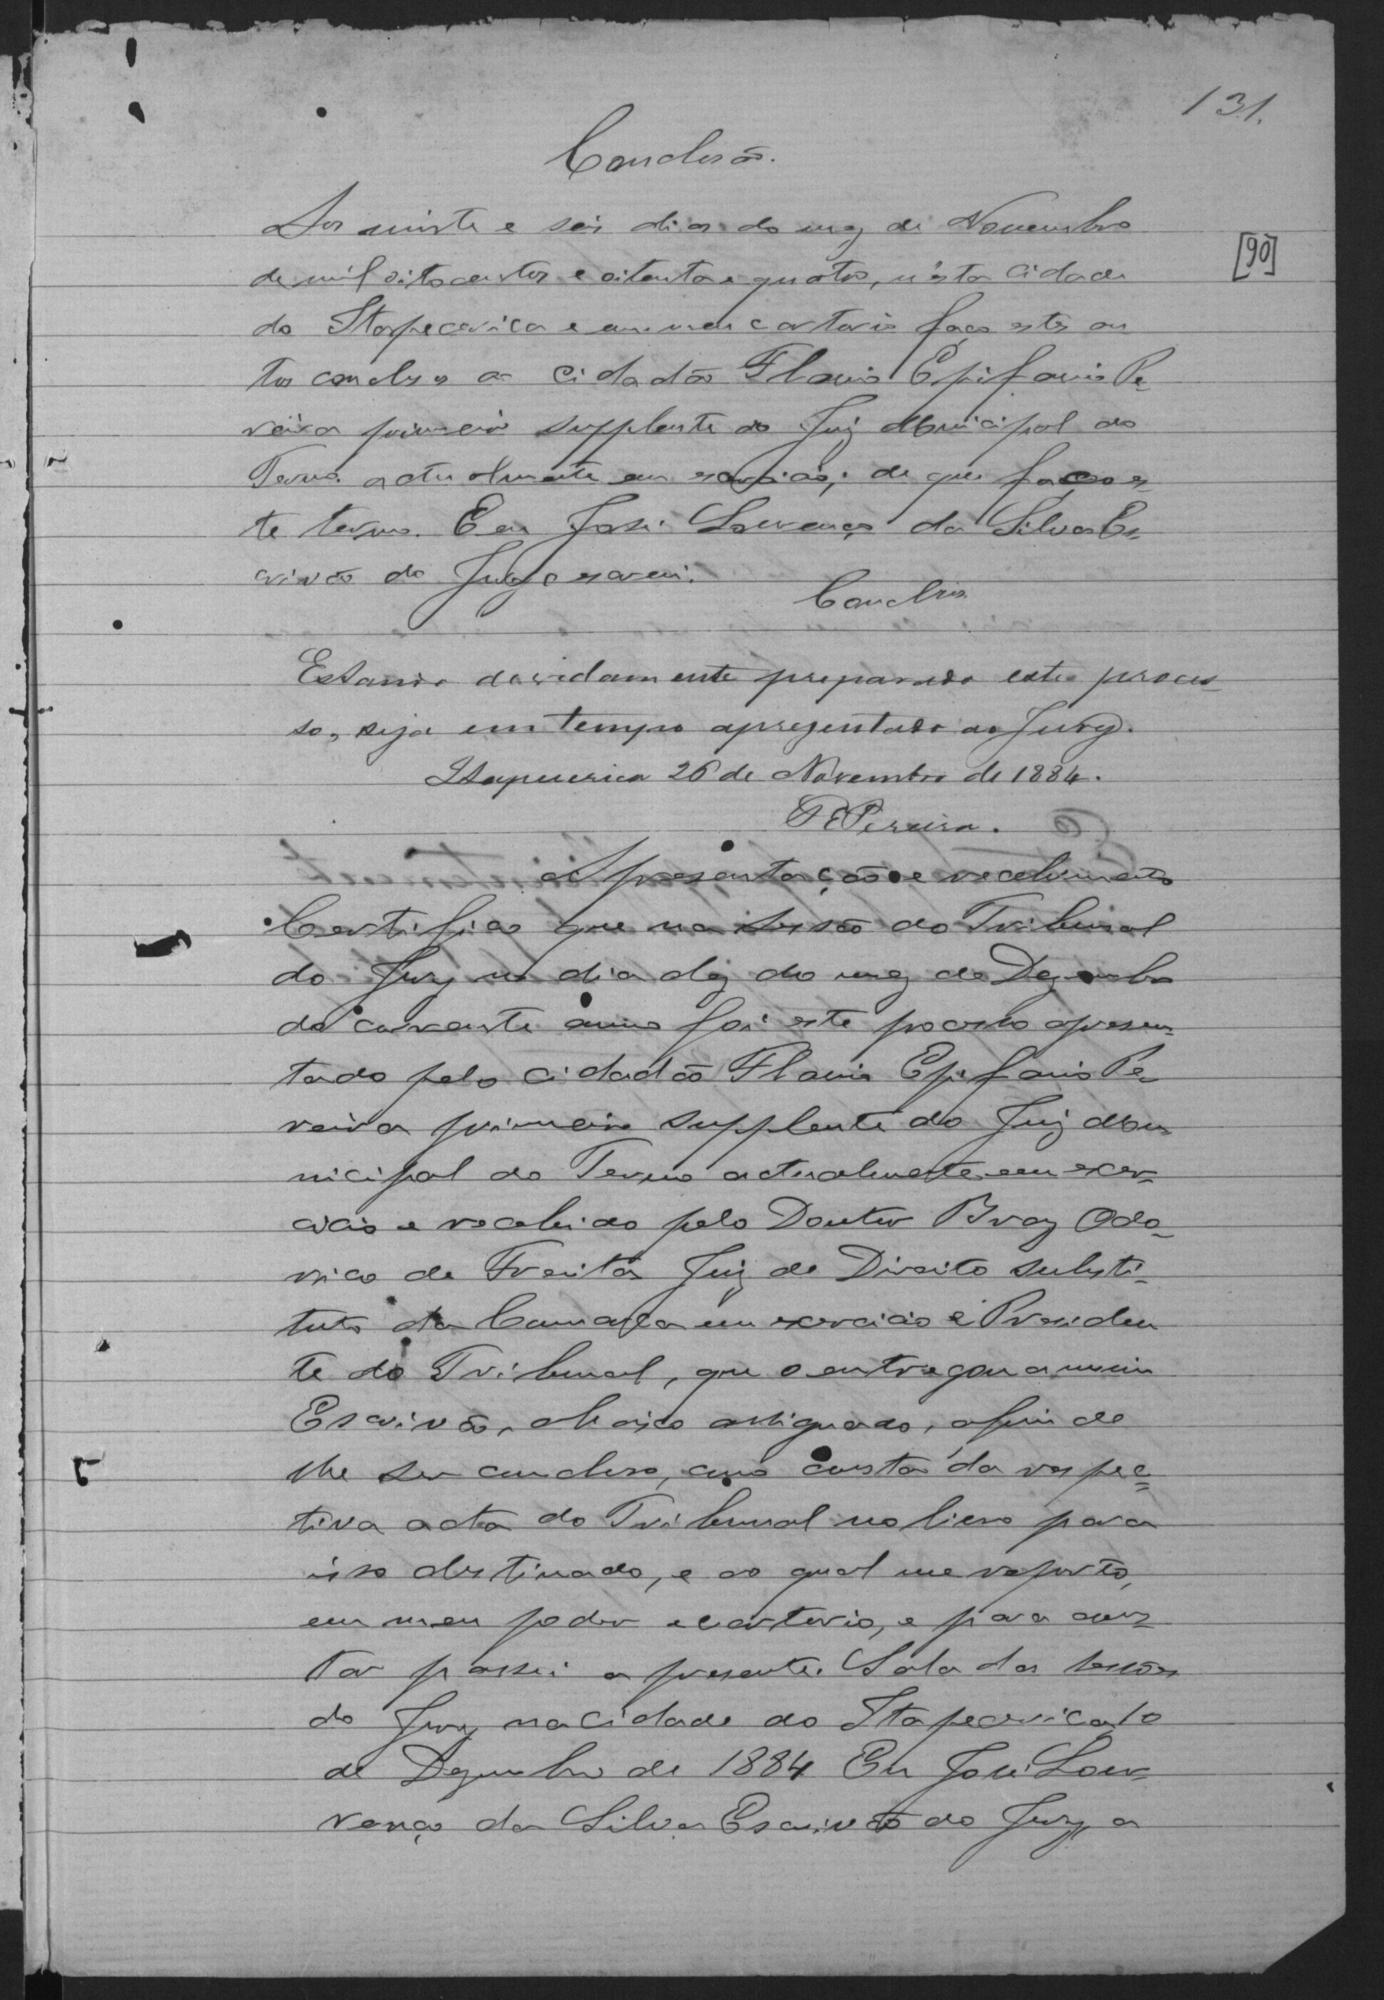 131.
Conclusão.
[90]
Aos vinte e seis dias do mez de Novembro
de mil oitocentos e oitenta e quatro, n'esta cidade
do Itapecerica e em meu cartorio faço estes au
tos conclusos ao cidadão Flavio Epifanio Pe-
reira primeiro supplente do Juiz Municipal do
Termo actualmente em exercicio; de que faço es-
te termo. Eu José Lourenço da Silva Es-
crivão do Jury escrevi.
Conclusos
Estando devidamente preparado este proces-
so, seja em tempo aprezentado ao Jury.
Itapecerica 26 de Novembro de 1884.
F E Pereira.
Apresentação e recebimento
Certifico que na sessão do Tribunal
do Jury no dia dez do mez de Dezembro
do corrente anno foi este processo apresen-
tado pelo cidadão Flavio Epifanio Pe-
reira primeiro supplente do Juiz Mu-
nicipal do Termo actualmente em exer-
cicio e recebido pelo Doutor Braz Odo-
rico de Freitas Juiz de Direito substi-
tuto da Comarca em exercicio e Presiden
te do Tribunal, que o entregou a mim
Escrivão, abaixo assignado, afim de
lhe ser concluso, como consta da respec-
tiva acta do Tribunal no livro para
isso destinado, e ao qual me reporto,
em meu poder e cartorio, e para cons-
tar passei a presente. Sala das sessões
do Jury na cidade do Itapecerica 10
de Dezembro de 1884 Eu José Lou-
renço da Silva Escrivão do Jury a